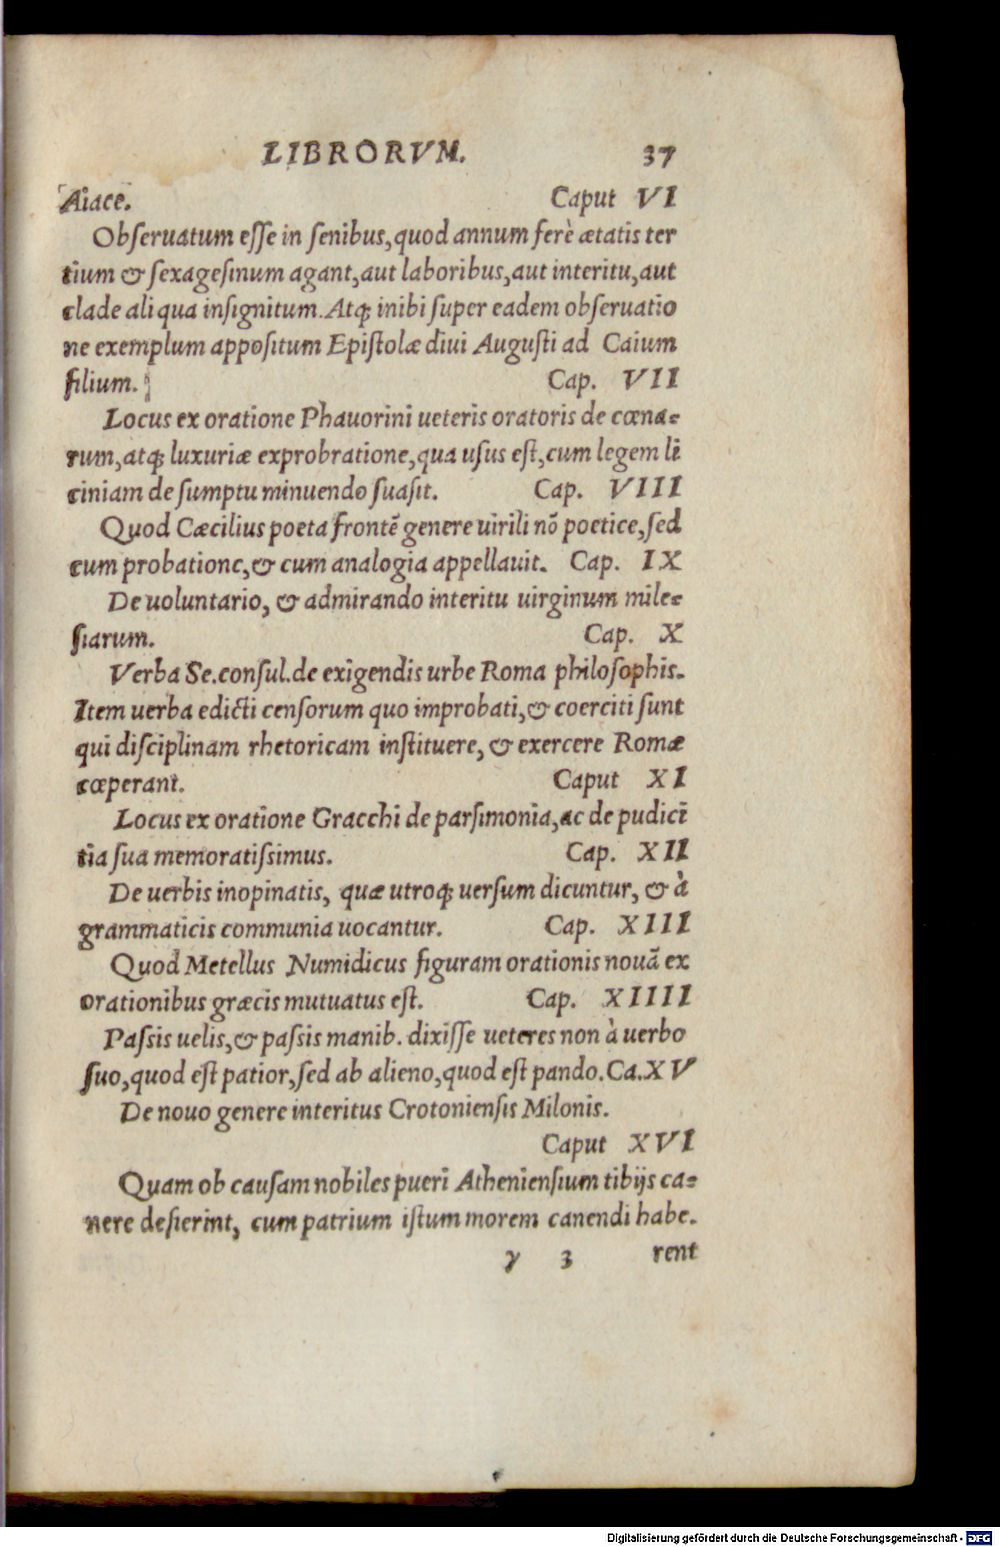 LIBRORVM. 37
Aiace. Caput VI
Obſeruatum eſſe in ſenibus, quod annum ferè ætatis ter
tium & ſexageſimum agant, aut laboribus, aut interitu, aut
clade aliqua inſignitum. Atq; inibi ſuper eadem obſeruatio
ne exemplum appoſitum Epiſtolæ diui Auguſti ad Caium
filium. Cap. VII
Locus ex oratione Phauorini ueteris oratoris de cœna-
rum, atq; luxuriæ exprobratione, qua uſus eſt, cum legem li
ciniam de ſumptu minuendo ſuaſit. Cap. VIII
Quod Cæcilius poeta frontẽ genere uirili nõ poetice, ſed
cum probatione, & cum analogia appellauit. Cap. IX
De uoluntario, & admirando interitu uirginum mile-
ſiarum. Cap. X
Verba Se. conſul. de exigendis urbe Roma philoſophis.
Item uerba edicti cenſorum quo improbati, & coerciti ſunt
qui diſciplinam rhetoricam inſtituere, & exercere Romæ
cœperant. Caput XI
Locus ex oratione Gracchi de parſimonia, ac de pudici
tia ſua memoratiſsimus. Cap. XII
De uerbis inopinatis, quæ utroq; uerſum dicuntur, & à
grammaticis communia uocantur. Cap. XIII
Quod Metellus Numidicus figuram orationis nouã ex
orationibus græcis mutuatus eſt. Cap. XIIII
Paſsis uelis, & paſsis manib. dixiſſe ueteres non à uerbo
ſuo, quod eſt patior, ſed ab alieno, quod eſt pando. Ca. XV
De nouo genere interitus Crotonienſis Milonis.
Caput XVI
Quam ob cauſam nobiles pueri Athenienſium tibijs ca-
nere deſierint, cum patrium iſtum morem canendi habe.
y 3 rent
Digitalisierung gefördert durch die Deutsche Forschungsgemeinschaft - DFG